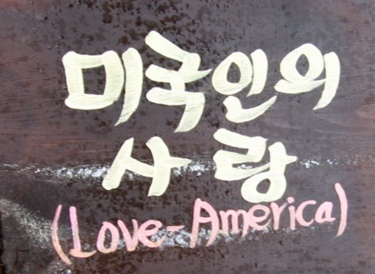 미국인의
사랑
(Love-America)